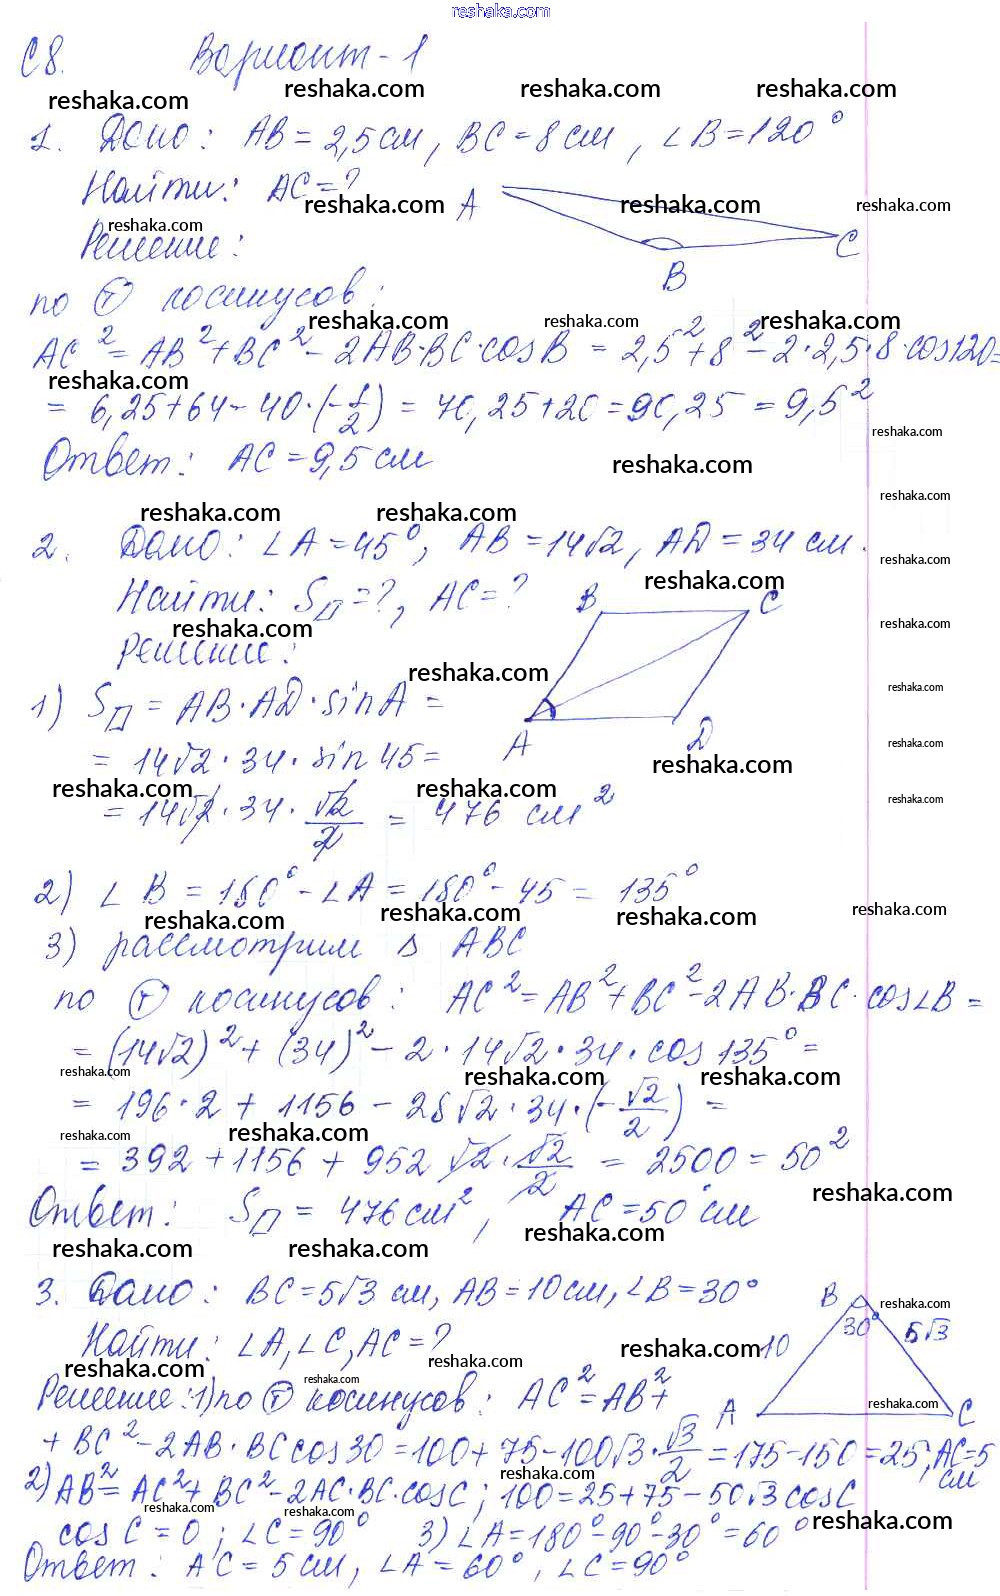 reshaka.com
С8. Вариант-1
reshaka.com reshaka.com reshaka.com reshaka.com
1. Дано: AB = 2,5 см, BC = 8 см, ∠B = 120°
Найти: AC = ?
reshaka.com reshaka.com reshaka.com
A
reshaka.com
Решение:
C
B
по Ⓣ косинусов:
reshaka.com reshaka.com reshaka.com
AC² = AB² + BC² - 2AB·BC·cosB = 2,5² + 8² - 2·2,5·8·cos120=
reshaka.com
= 6,25 + 64 - 40·(-1/2) = 70,25 + 20 = 90,25 = 9,5²
reshaka.com
Ответ: AC = 9,5 см
reshaka.com
reshaka.com
reshaka.com reshaka.com
2. Дано: ∠A = 45°, AB = 14√2, AD = 34 см.
reshaka.com
reshaka.com
Найти: S▱ = ?, AC = ?
B C
reshaka.com reshaka.com
Решение:
reshaka.com
reshaka.com
1) S▱ = AB·AD·sinA =
A D
reshaka.com
= 14√2·34·sin45=
reshaka.com
reshaka.com reshaka.com reshaka.com
= 14√2·34·√2/2 = 476 см²
2) ∠B = 180° - ∠A = 180° - 45 = 135°
reshaka.com reshaka.com reshaka.com reshaka.com
3) рассмотрим △ ABC
по Ⓣ косинусов: AC² = AB² + BC² - 2AB·BC·cos∠B =
= (14√2)² + (34)² - 2·14√2·34·cos135° =
reshaka.com reshaka.com reshaka.com
= 196·2 + 1156 - 28√2·34·(-√2/2) =
reshaka.com reshaka.com
= 392 + 1156 + 952√2·√2/2 = 2500 = 50²
reshaka.com
Ответ: S▱ = 476 см², AC = 50 см
reshaka.com reshaka.com reshaka.com
3. Дано: BC = 5√3 см, AB = 10 см, ∠B = 30°
B
reshaka.com
30° 5√3
Найти: ∠A, ∠C, AC = ?
10
reshaka.com reshaka.com reshaka.com
reshaka.com
Решение: 1) по Ⓣ косинусов: AC² = AB² +
reshaka.com
A C
+ BC² - 2AB·BC cos30 = 100 + 75 - 100√3·√3/2 = 175 - 150 = 25; AC = 5 см
reshaka.com
2) AB² = AC² + BC² - 2AC·BC·cosC; 100 = 25 + 75 - 50√3 cosC
reshaka.com reshaka.com
cos C = 0; ∠C = 90° 3) ∠A = 180° - 90° - 30° = 60°
reshaka.com
Ответ: AC = 5 см, ∠A = 60°, ∠C = 90°